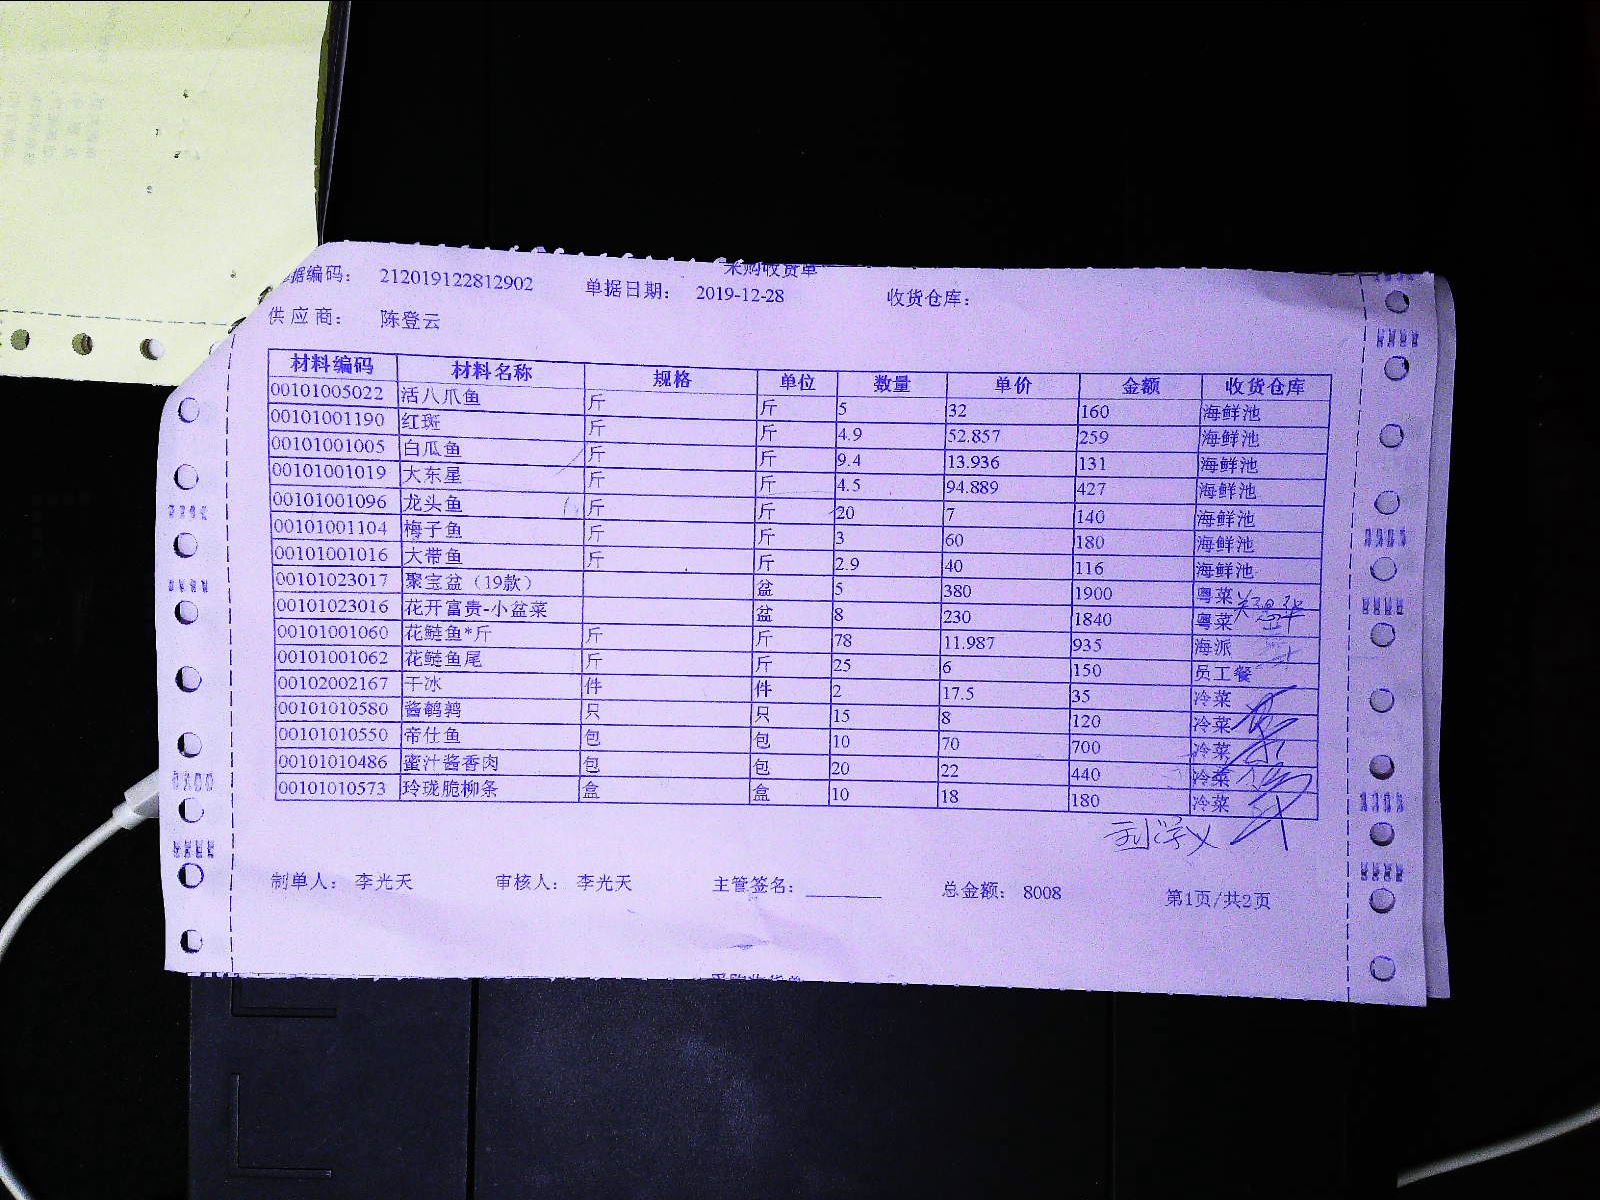 采购收货单
单据编码： 212019122812902 单据日期： 2019-12-28 收货仓库：
供 应 商： 陈登云
材料编码 材料名称 规格 单位 数量 单价 金额 收货仓库
00101005022 活八爪鱼 斤 斤 5 32 160 海鲜池
00101001190 红斑 斤 斤 4.9 52.857 259 海鲜池
00101001005 白瓜鱼 斤 斤 9.4 13.936 131 海鲜池
00101001019 大东星 斤 斤 4.5 94.889 427 海鲜池
00101001096 龙头鱼 斤 斤 20 7 140 海鲜池
00101001104 梅子鱼 斤 斤 3 60 180 海鲜池
00101001016 大带鱼 斤 斤 2.9 40 116 海鲜池
00101023017 聚宝盆（19款） 盆 5 380 1900 粤菜
00101023016 花开富贵-小盆菜 盆 8 230 1840 粤菜
00101001060 花鲢鱼*斤 斤 斤 78 11.987 935 海派
00101001062 花鲢鱼尾 斤 斤 25 6 150 员工餐
00102002167 干冰 件 件 2 17.5 35 冷菜
00101010580 酱鹌鹑 只 只 15 8 120 冷菜
00101010550 帝仕鱼 包 包 10 70 700 冷菜
00101010486 蜜汁酱香肉 包 包 20 22 440 冷菜
00101010573 玲珑脆柳条 盒 盒 10 18 180 冷菜
制单人： 李光天 审核人： 李光天 主管签名： 总金额： 8008 第1页/共2页